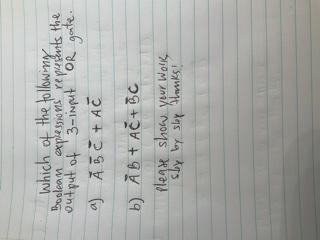 Which of the following
Boolean expressions represents the
output of 3-input OR gate.
a) A B̄ C̄ + A C̄
b) Ā B + A C̄ + B̄ C
Please show your work,
step by step thanks!